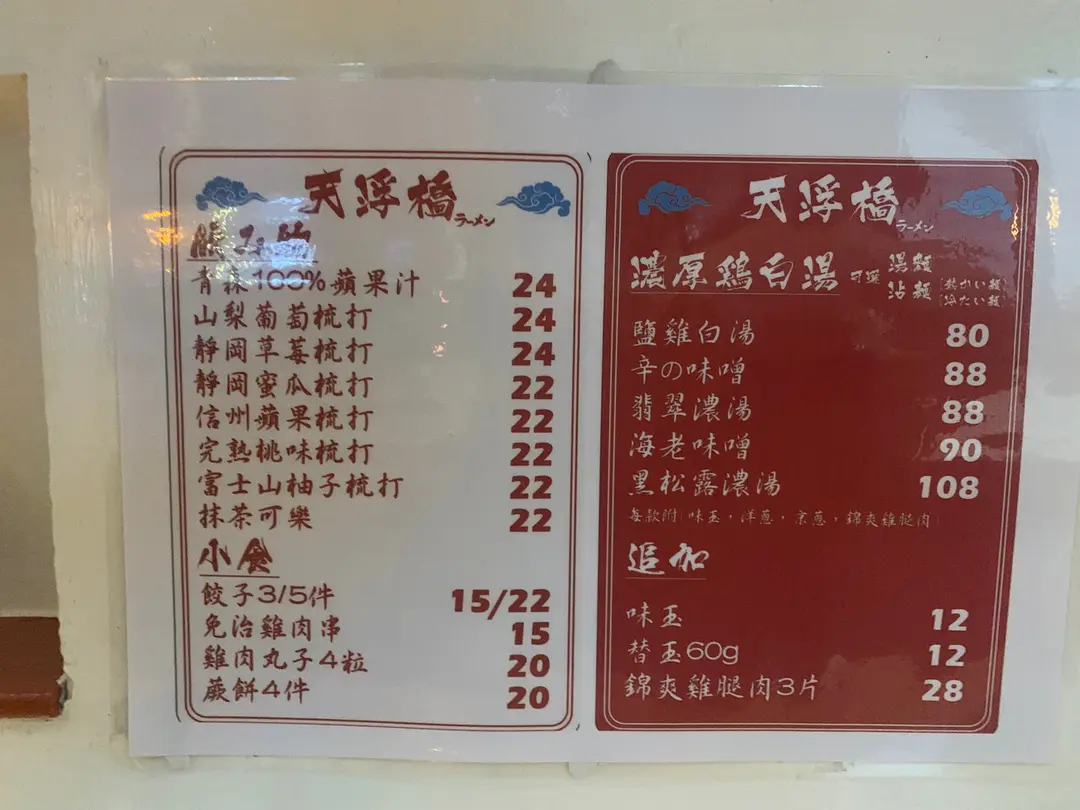 天浮橋
ラーメン
飲み物
青森100%蘋果汁 24
山梨葡萄梳打 24
靜岡草莓梳打 24
靜岡蜜瓜梳打 22
信州蘋果梳打 22
完熟桃味梳打 22
富士山柚子梳打 22
抹茶可樂 22
小食
餃子3/5件 15/22
免治雞肉串 15
雞肉丸子4粒 20
蕨餅4件 20
天浮橋
ラーメン
濃厚鶏白湯 可選 湯麵 沾麵
鹽雞白湯 80
辛の味噌 88
翡翠濃湯 88
海老味噌 90
黑松露濃湯 108
每款附(味玉,洋蔥,京蔥,錦爽雞腿肉)
追加
味玉 12
替玉60g 12
錦爽雞腿肉3片 28